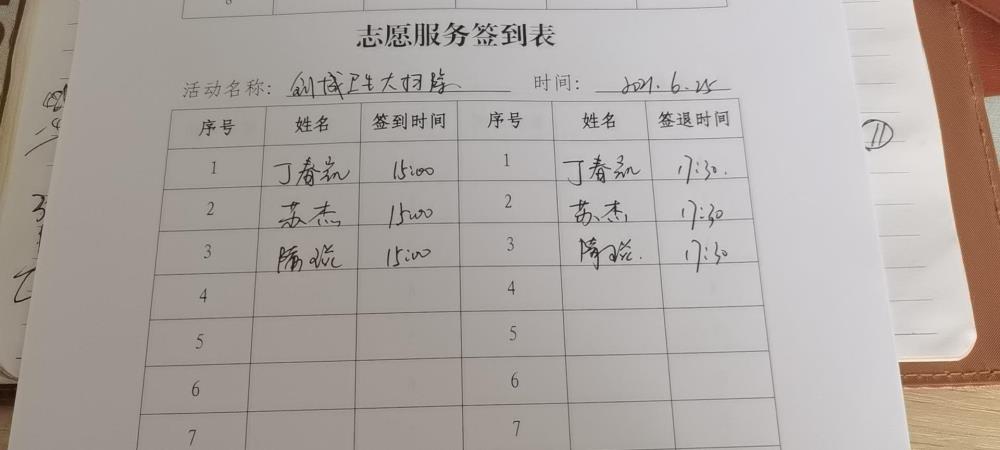 8
志愿服务签到表
活动名称: 创城卫生大扫除 时间: 2021.6.25
序号 姓名 签到时间 序号 姓名 签退时间
1 丁春 15:00 1 丁春 17:30.
2 苏杰 15:00 2 苏杰 17:30
3 15:00 3 17:30
4 4
5 5
6 6
7 7
11